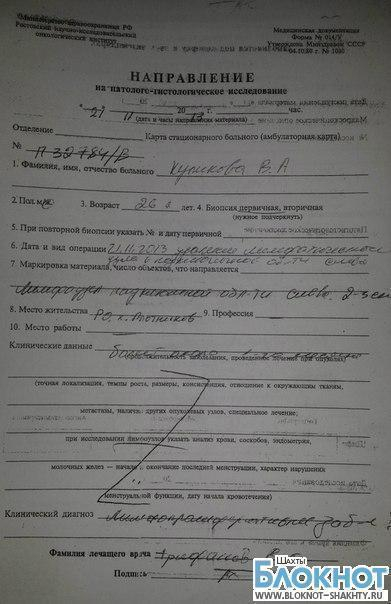 Министерство здравоохранения РФ
Ростовский научно-исследовательский
онкологический институт
Медицинская документация
Форма № 014/У
Утверждена Минздравом СССР
04.10.80 г. № 1030
НАПРАВЛЕНИЕ
на патолого-гистологическое исследование
"21" 11 2013 час.
(дата и часы направления материала)
Отделение Карта стационарного больного (амбулаторная карта)
№ П-32784/В
1. Фамилия, имя, отчество больного Куликова В.А
2. Пол м/ж 3. Возраст 26 л 4. Биопсия первичная, вторичная
(нужное подчеркнуть)
5. При повторной биопсии указать № и дату первичной
6. Дата и вид операции 21.11.2013 удаление лимфатического
узла в надключичной обл-ти слева
7. Маркировка материала, число объектов, что направляется
Лимфоузел надключичной обл-ти слева 2-3 см
8. Место жительства РО, 9. Профессия
10. Место работы
Клинические данные
(продолжительность заболевания, проведенное лечение при опухолях)
(точная локализация, темпы роста, размеры, консистенция, отношение к окружающим тканям,
метастазы, наличие других опухолевых узлов, специальное лечение;
при исследовании лимфоузлов указать анализ крови, соскобов, эндометрия,
молочных желез — начало, окончание последней менструации, характер нарушений
менструальной функции, дата начала кровотечения)
Клинический диагноз Лимфопролиферативное заб-е
Фамилия лечащего врача Трифанов
Подпись
Шахты
БЛОКНОТ
WWW.BLOKNOT-SHAKHTY.RU